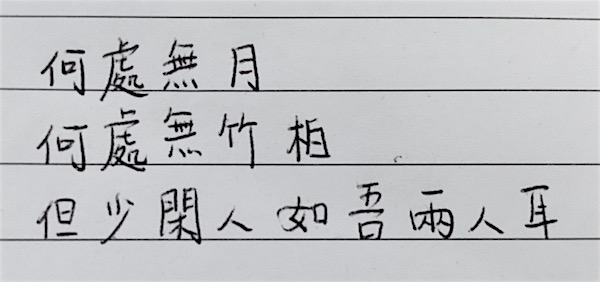 何處無月
何處無竹柏
但少閑人如吾兩人耳